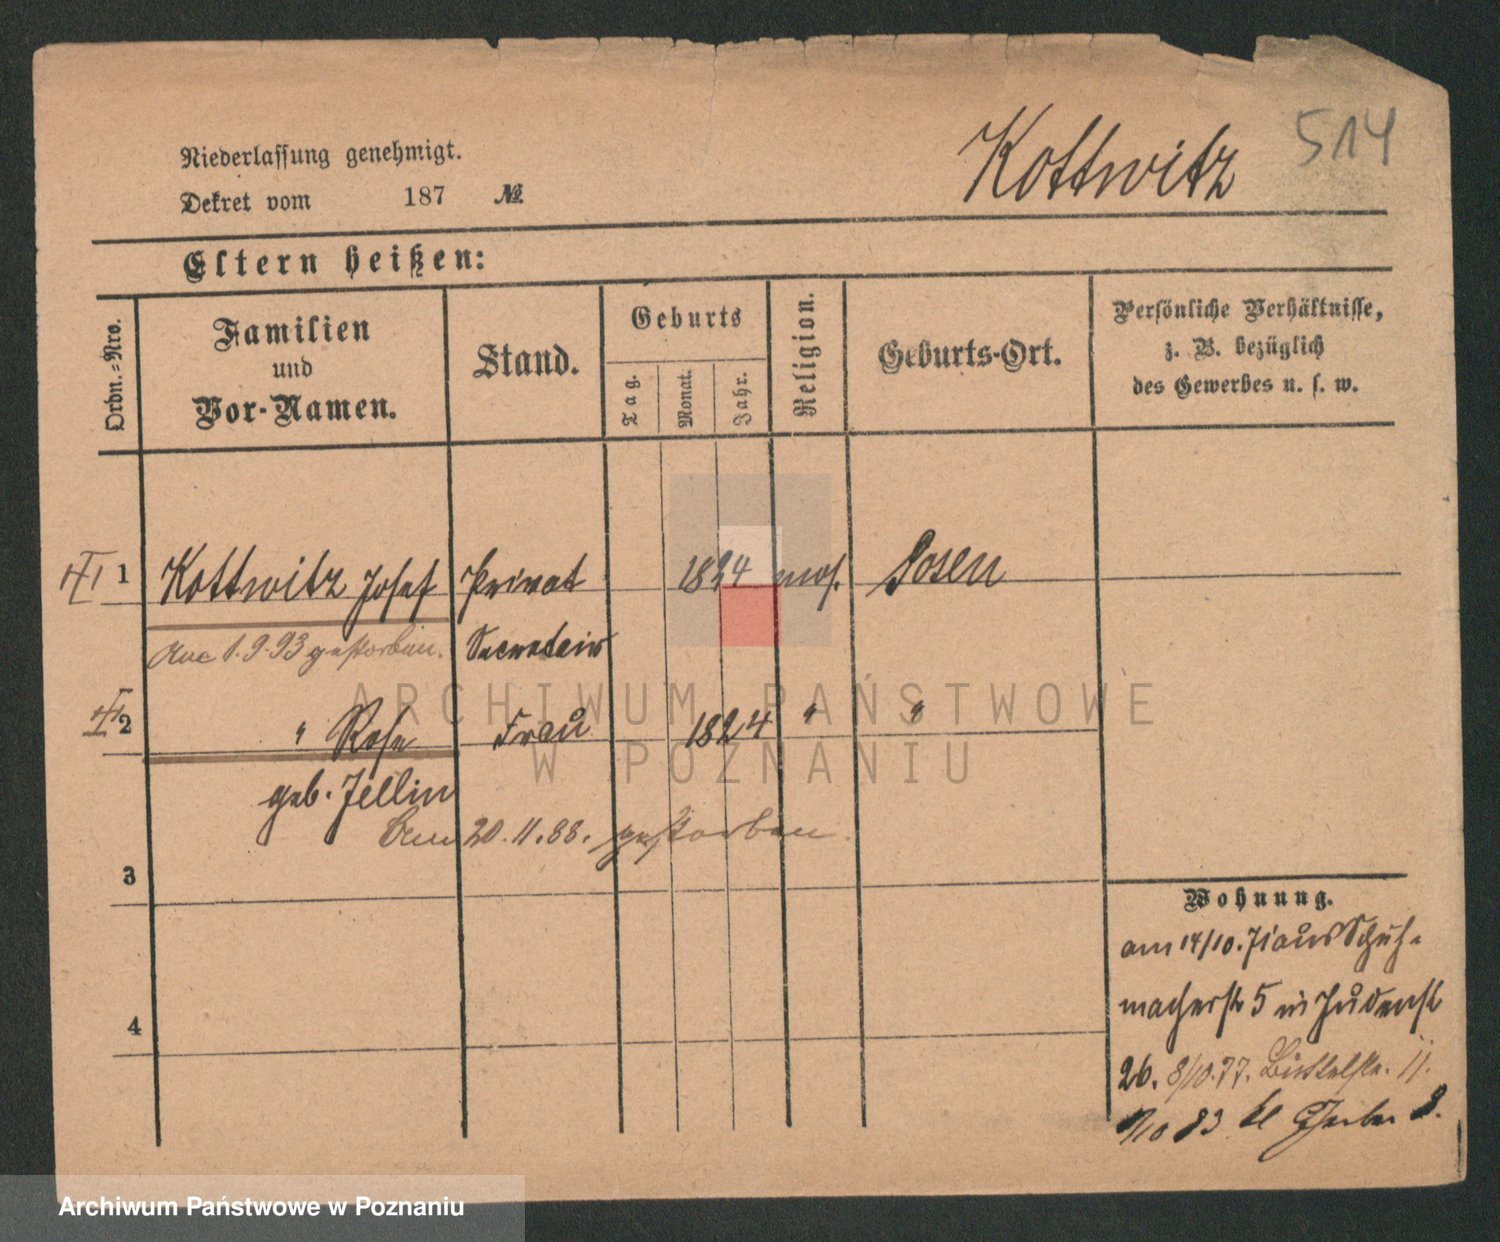 Kottwitz 514
Niederlassung genehmigt.
Dekret vom 187 №
Eltern heißen:
Ordn.-Nro.
Familien
und
Vor-Namen.
Stand.
Geburts
Tag.
Monat.
Jahr.
Religion.
Geburts-Ort.
Persönliche Verhältnisse,
z. B. bezüglich
des Gewerbes u. s. w.
1 Kottwitz Josef Privat 1824 mos. Posen
1.9.93 gestorben. Secretair
2 " Rosa Frau 1824 " "
geb. Jellin
Am 20.11.88. gestorben.
3
4
Wohnung.
am 14/10. 71 aus Schuh-
macherstr 5 in Judenstr
26. 8/10.77. Büttelstr. 11.
1/10 83 kl Gerber 8.
ARCHIWUM PAŃSTWOWE
W POZNANIU
Archiwum Państwowe w Poznaniu